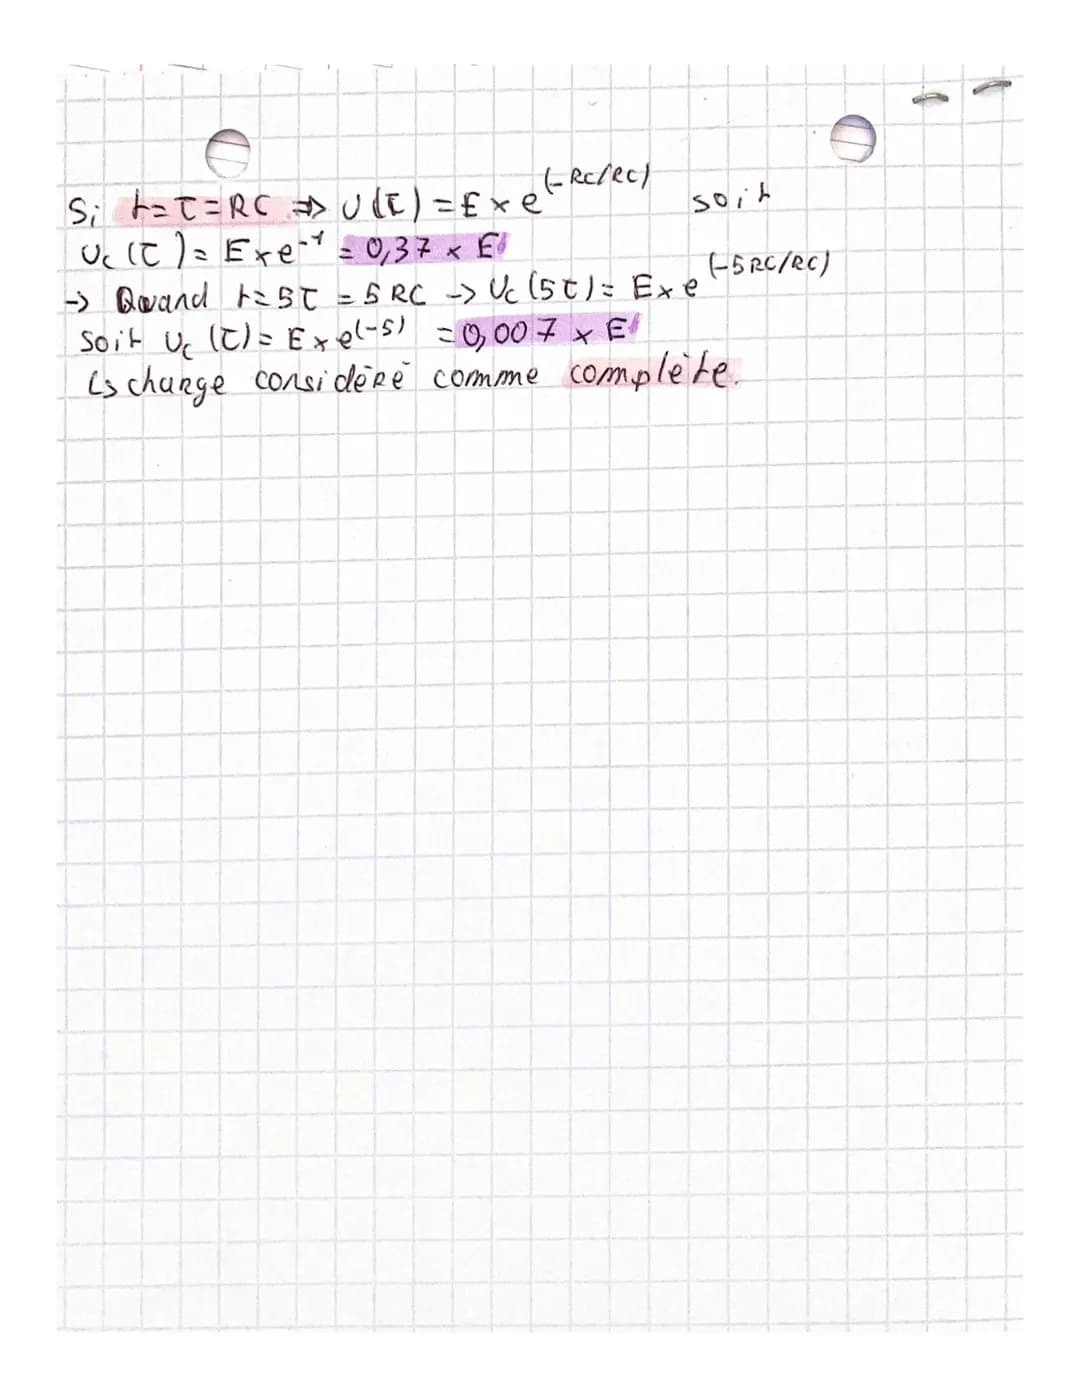 Si t=τ=RC ⇒ U(τ)=E×e^(-RC/RC) soit
Uc(τ)= E×e^-1 = 0,37 × E
-> Quand t=5τ = 5RC -> Uc(5τ)= E×e^(-5RC/RC)
soit Uc (τ)= E×e^(-5) = 0,007 × E
↳ charge considéré comme complète.